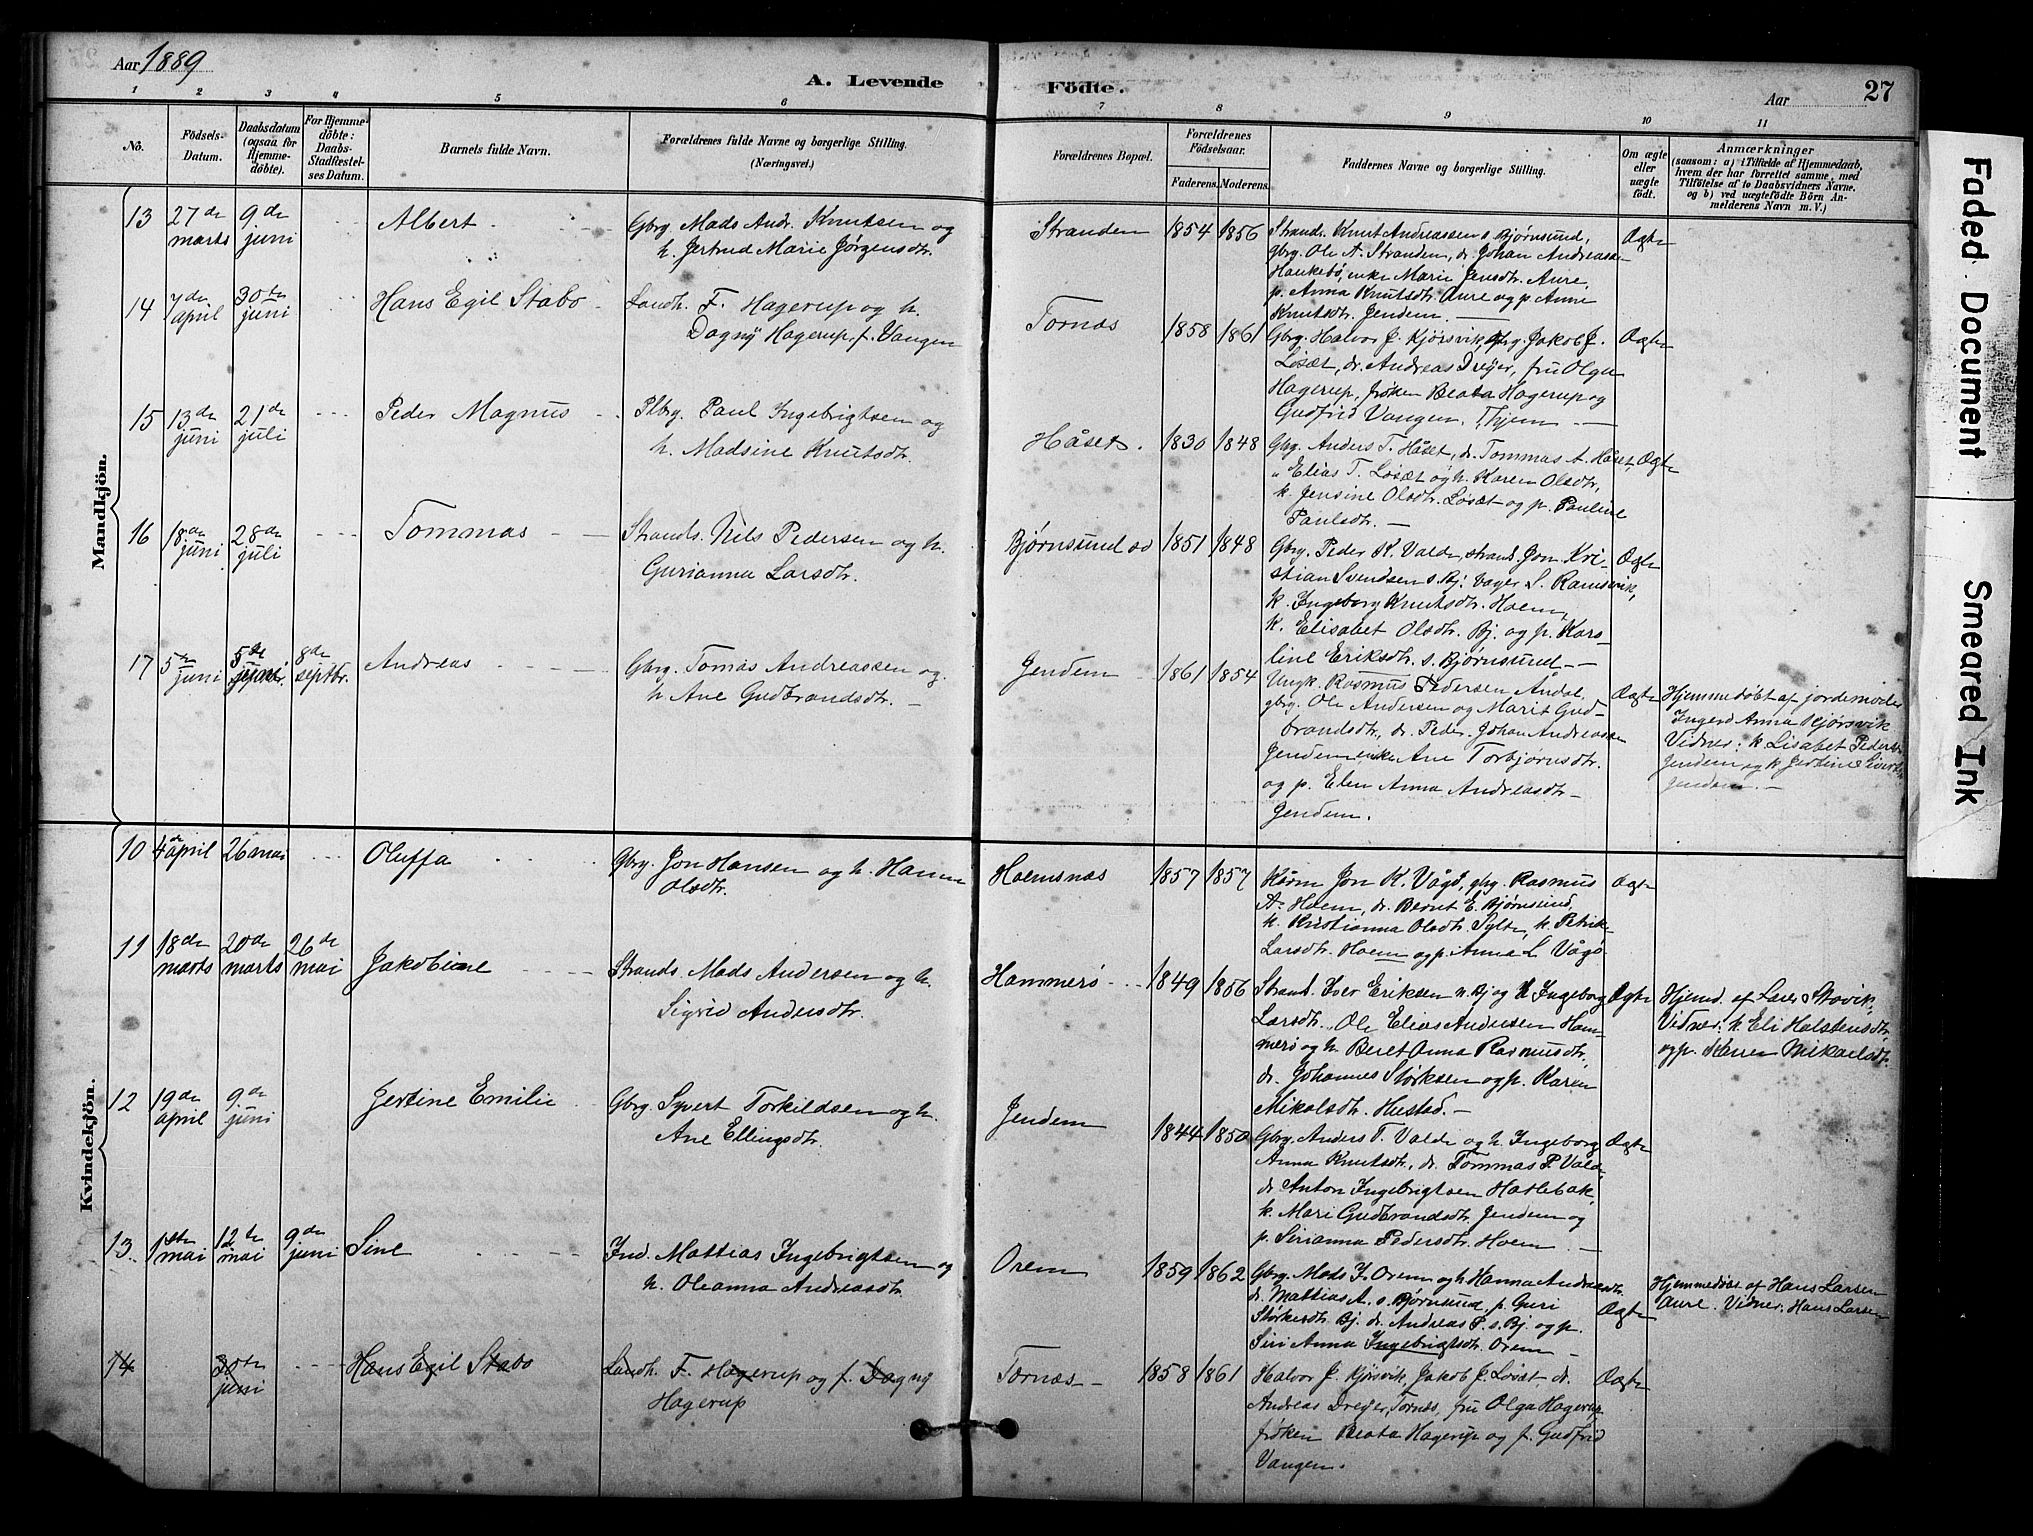 Aar 1889
A. Levende
Födte.
Aar
27
1 2 3 4 5 6 7 8 9 10 11
No.
Födsels-
Datum.
Daabsdatum
(ogsaa for
Hjemme-
döbte).
For Hjemme-
döbte:
Daabs-
Stadfæstel-
ses Datum.
Barnets fulde Navn.
Forældrenes fulde Navne og borgerlige Stilling.
(Næringsvei.)
Forældrenes Bopæl.
Forældrenes
Födselsaar.
Faderens. Moderens.
Faddernes Navne og borgerlige Stilling.
Om ægte
eller
uægte
födt.
Anmærkninger
(saasom: a) i Tilfælde af Hjemmedaab,
hvem der har forrettet samme, med
Tilföielse af to Daabsvidners Navne,
og b) ved uægtefödte Börn An-
melderens Navn m. V.)
Mandkjön.
13 27de marts 9de juni Albert
Gbrg. Mads Andr. Knutsen og
h. Jertrud Marie Jørgensdtr.
Stranden 1854 1856
Strands. Knut Andreassen s. Bjørnsund,
Gbrg. Ole A. Stranden, dr. Johan Andreass.
Haukebø, enke Marie Jensdtr. Aure,
p. Anna Knutsdtr. Aure og p. Anne
Knutsdtr. Jendem. —
Ægte
14 7de april 30te juni Hans Egil Stabo
Landh. F. Hagerup og h.
Dagny Hagerup, f. Vangen
Tornæs 1858 1861
Gbrg. Halvor J. Kjørsvik, gbrg. Jakob J.
Løsæt, dr. Andreas Dreyer, fru Olga
Hagerup, frøken Beata Hagerup og
Gudfrid Vangen, Thjem —
Ægte
15 13de juni 21de juli Peder Magnus
Plbrg. Paul Ingebrigtsen og
h. Madsine Knutsdtr.
Håset. 1830 1848
Gbrg. Anders T. Håset, dr. Tommas A. Håset,
" Elias T. Løsæt og h. Karen Olsdtr,
k. Jensine Olsdtr. Løsæt og p. Pauline
Paulsdtr. —
Ægte
16 18de juni 28de juli Tommas
Strands. Nils Pedersen og h.
Gurianna Larsdtr.
Bjørnsund sø 1851 1848
Gbrg. Peder K. Valde, strands. Jon Kri-
stian Svendsen s. Bj. bager L. Ramsvik,
k. Ingeborg Knutsdtr. Hoem,
k. Elisabet Olsdtr. Bj. og p. Karo-
line Eriksdtr. s. Bjørnsund —
Ægte
17 5te juni 5te juni 8de septbr. Andreas
Gbrg. Tomas Andreassen og
h. Ane Gudbrandsdtr. —
Jendem 1861 1854
Ungk. Rasmus Pedersen Ådal,
gbrg. Ole Andersen og Marit Gud-
brandsdtr., dr. Peder Johan Andreassen
Jendem enke Ane Torbjørnsdtr.
og p. Elen Anna Andreasdtr —
Jendem.
Ægte
Hjemmedøbt af jordemoder
Ingerd Anna Kjørsvik
Vidner: k. Lisabet Peders.
Jendem og k. Jertine
Jendem. —
Kvindekjön.
10 4de april 26 mai Oluffa
Gbrg. Jon Hansen og h. Hanna
Olsdtr.
Hoemsnæs 1857 1857
Kårm. Jon K. Vågø, gbrg. Rasmus
A. Hoem, dr. Bernt E. Bjørnsund,
k. Kristianna Olsdtr. Sylte, k. Petrik.
Larsdtr. Hoem og p. Anna L. Vågø.
Ægte
11 18de marts 20de marts 26de mai Jakobine
Strands. Mads Andersen og h.
Sigrid Andersdtr.
Hammerø 1849 1856
Strand. Iver Eriksen n. Bj og k Ingeborg
Larsdtr. Ole Elias Andersen Ham-
merø og h. Beret Anna Rasmusdtr,
dr. Johannes Størksen og p. Karen
Mikalsdtr. Hustad. —
Ægte
Hjemd. af Lars Skovik,
Vidner: k. Eli Halstensdtr.
og p. Karen Mikaelsdtr.
12 19de april 9de juni Jertine Emilie
Gbrg. Syvert Torkildsen og h.
Ane Ellingsdtr.
Jendem 1844 1850
Gbrg. Anders T. Valde og h. Ingeborg
Anna Knutsdtr., dr. Tommas P. Valde,
dr. Anton Ingebrigtsen Hatlebak,
k. Mari Gudbrandsdtr. Jendem og
p. Serianna Pedersdtr. Hoem —
Ægte
13. 1ste mai 12te mai 9de juni Sine
Ind. Mattias Ingebrigtsen og
h. Oleanna Andreasdtr.
Orem 1859 1862
Gbrg. Mads I. Orem og h. Hanna Andreasdtr.
dr. Mattias A. s. Bjørnsund, p. Guri
Størkersdtr. Bj. dr. Andreas P. s. Bj. og p.
Siri Anna Ingebrigtsdtr. Orem —
Ægte
Hjemmedøbt af Hans Larsen
Aure. Vidner: Hans Larsen
14 30te juni Hans Egil Stabo
Landh. F. Hagerup og f. Dagny
Hagerup
Tornæs — 1858 1861
Halvor J. Kjørsvik, Jakob J. Løsæt, dr.
Andreas Dreyer, Tornæs, fru Olga Hagerup
frøken Beata Hagerup og f. Gudfrid
Vangen.
Ægte
Faded Document
Smeared Ink